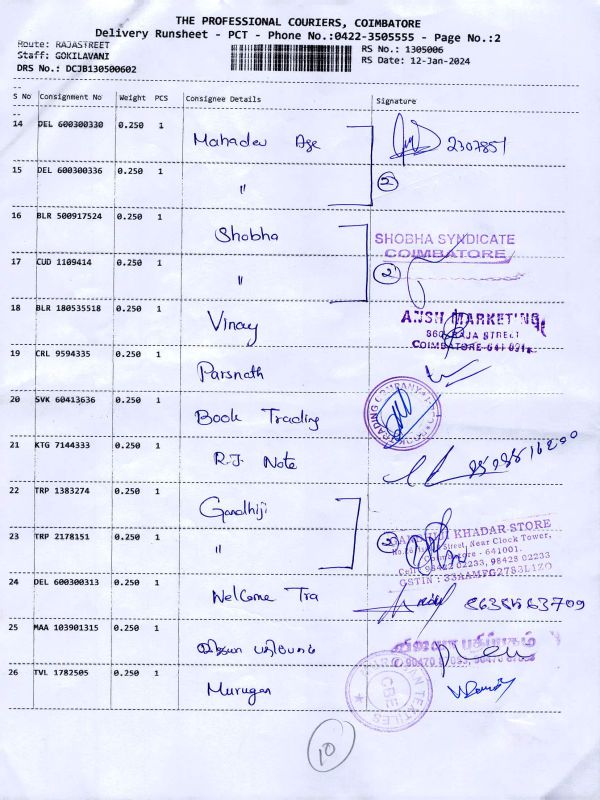 THE PROFESSIONAL COURIERS, COIMBATORE
Delivery Runsheet - PCT - Phone No.:0422-3505555 - Page No.:2
Route: RAJASTREET
Staff: GOKILAVANI
DRS No.: DCJB130500602
RS No.: 1305006
RS Date: 12-Jan-2024
S No Consignment No Weight PCS Consignee Details Signature
14 DEL 600300330 0.250 1 Mahadev Age 2307851
15 DEL 600300336 0.250 1 " 2
16 BLR 500917524 0.250 1 Shobha SHOBHA SYNDICATE
COIMBATORE
17 CUD 1109414 0.250 1 " 2
18 BLR 180535518 0.250 1 Vinay ANSH MARKETING
RAJA STREET
COIMBATORE-641 001.
19 CRL 9594335 0.250 1 Parsnath
20 SVK 60413636 0.250 1 Book Trading TRADING COMPANY
21 KTG 7144333 0.250 1 R.J. Note
22 TRP 1383274 0.250 1 Gandhiji KHADAR STORE
Street, Near Clock Tower,
Coimbatore - 641001.
Cell: 98422 02233, 98428 02233
GSTIN : 33AAMFG2783L1ZO
23 TRP 2178151 0.250 1 " 2
24 DEL 600300313 0.250 1 Welcome Tra
25 MAA 103901315 0.250 1 பதிப்பகம்
26 TVL 1782505 0.250 1 Murugan TEXTILES
CBE
10